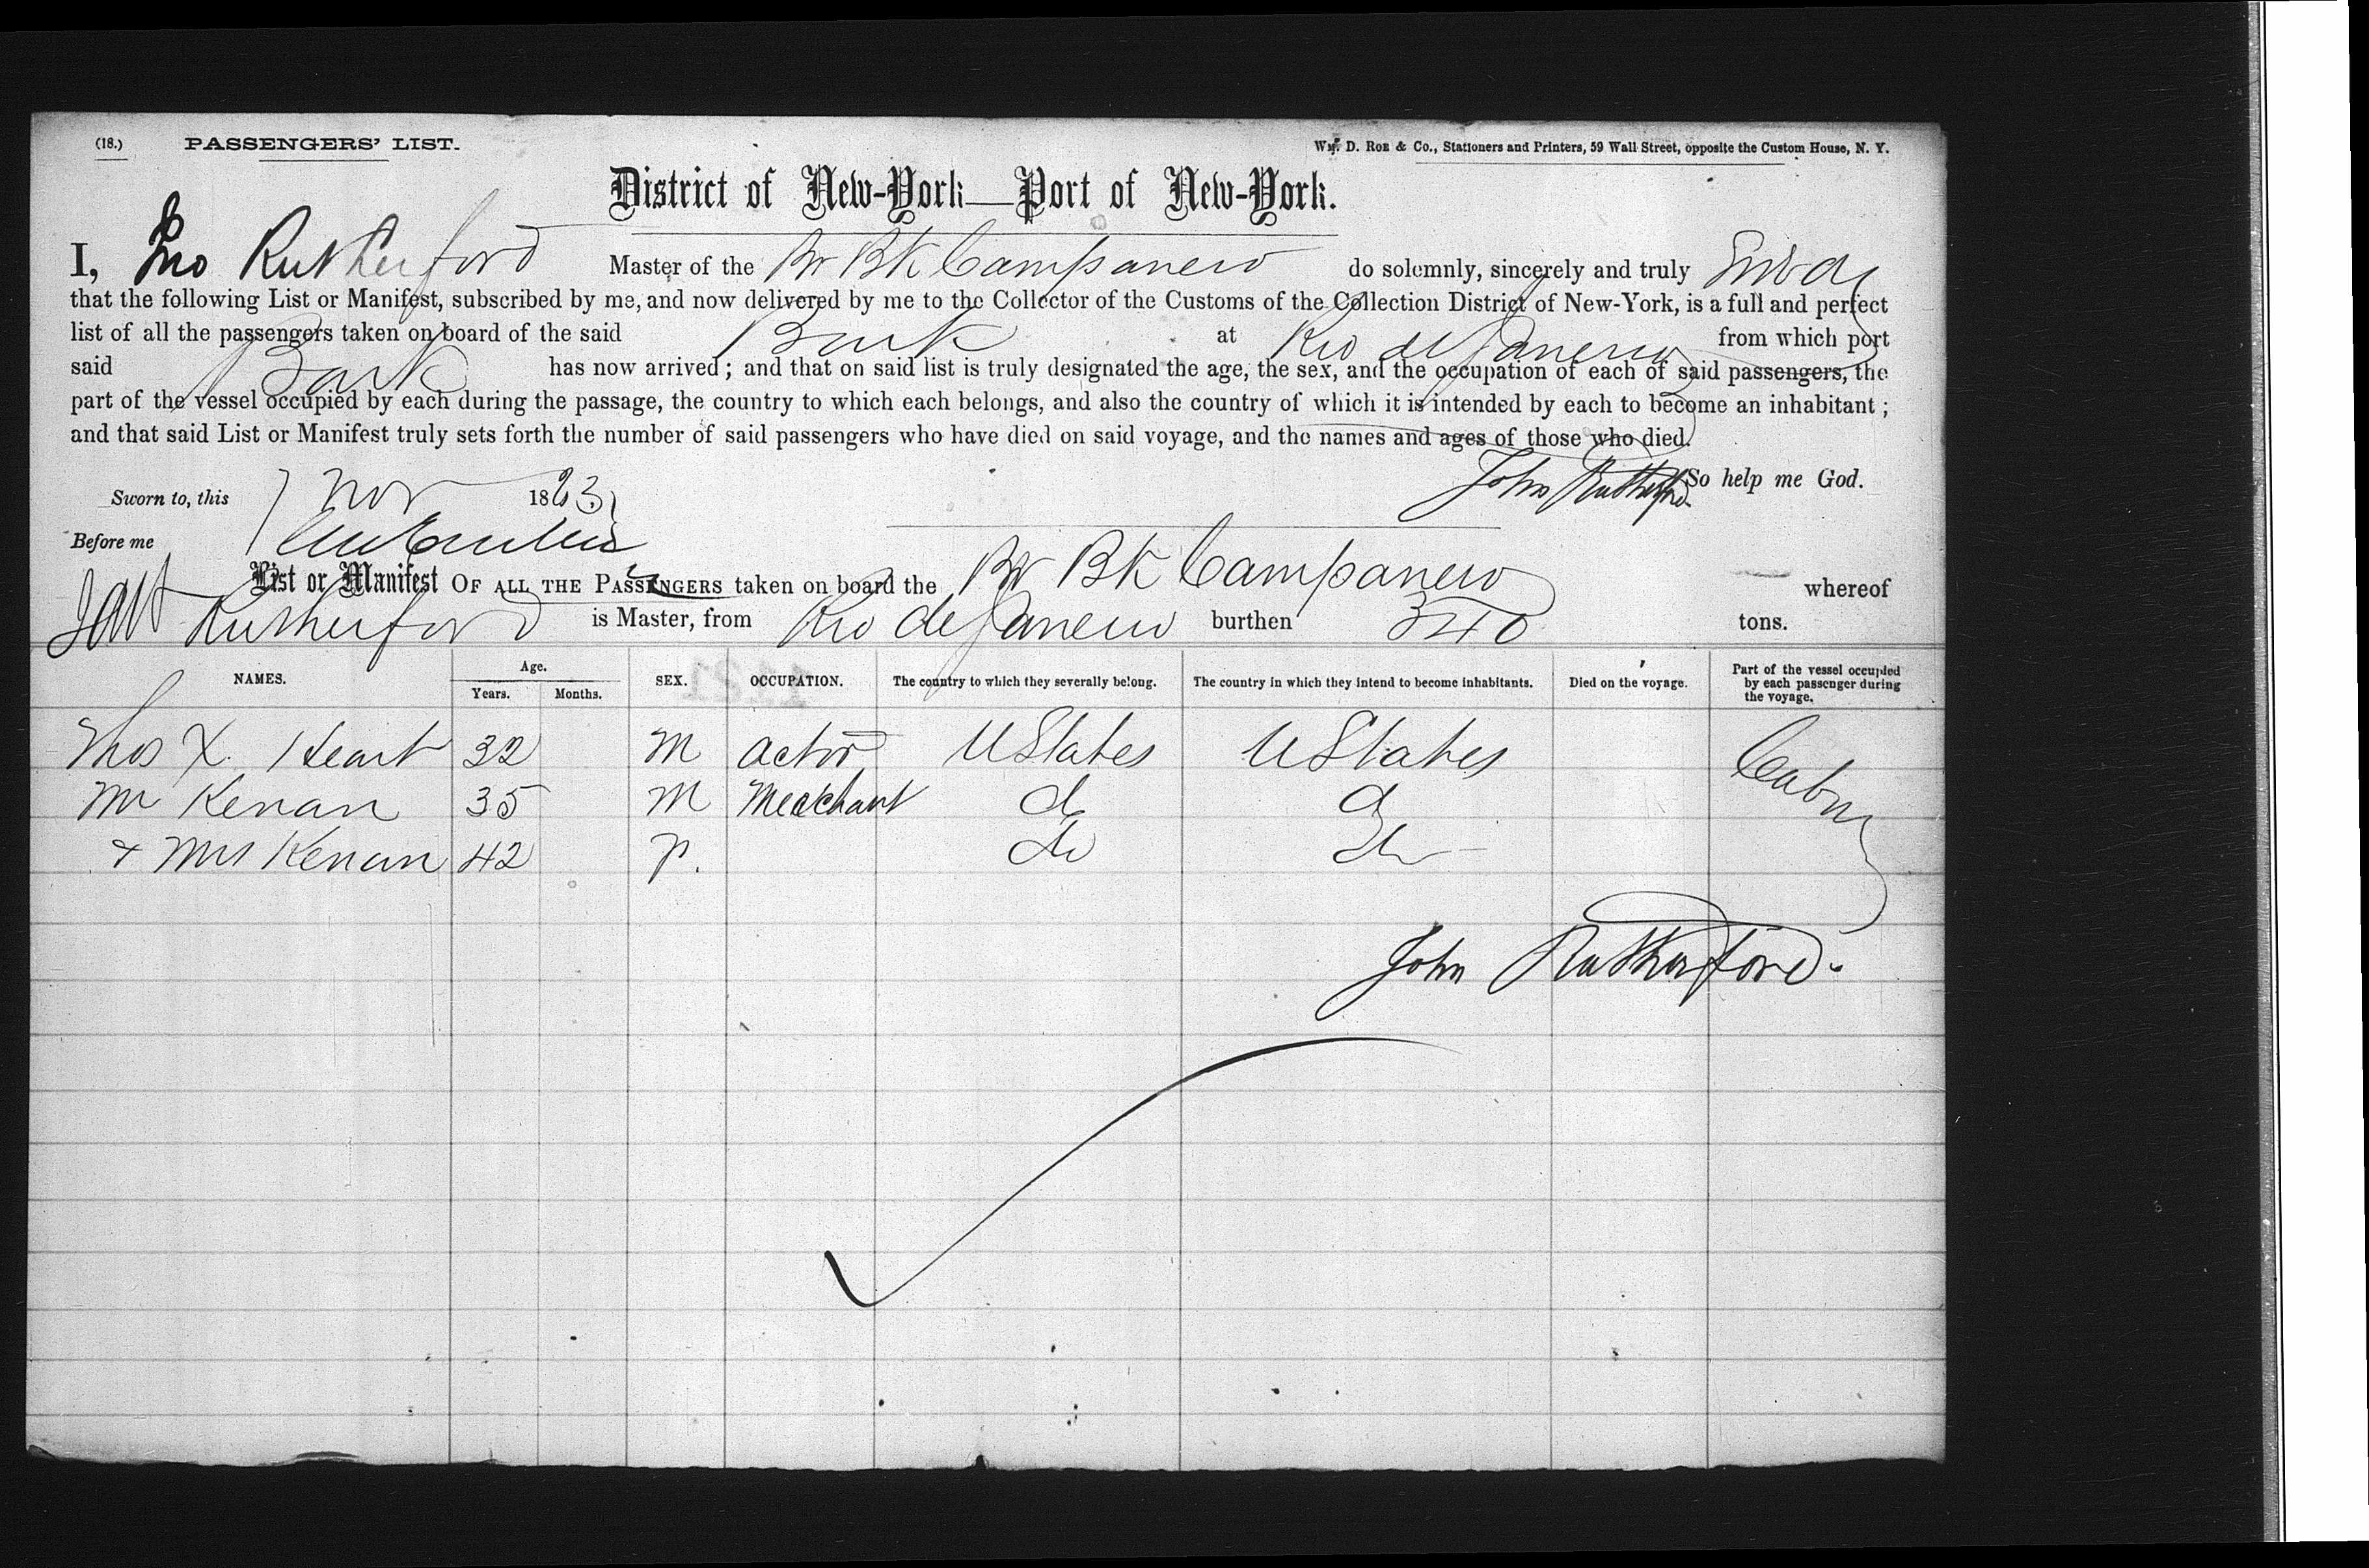 (18.) PASSENGERS' LIST. Wm. D. Roe & Co., Stationers and Printers, 59 Wall Street, opposite the Custom House, N. Y.
District of New-York—Port of New-York.
I, Jno Rutherford Master of the Br Bk Campanero do solemnly, sincerely and truly Swear
that the following List or Manifest, subscribed by me, and now delivered by me to the Collector of the Customs of the Collection District of New-York, is a full and perfect
list of all the passengers taken on board of the said Bark at Rio de Janeiro from which port
said Bark has now arrived; and that on said list is truly designated the age, the sex, and the occupation of each of said passengers, the
part of the vessel occupied by each during the passage, the country to which each belongs, and also the country of which it is intended by each to become an inhabitant;
and that said List or Manifest truly sets forth the number of said passengers who have died on said voyage, and the names and ages of those who died.
John Rutherford So help me God.
Sworn to, this 7 Nov 1863
Before me
List or Manifest OF ALL THE PASSENGERS taken on board the Br Bk Campanero whereof
Rutherford is Master, from Rio de Janeiro burthen 340 tons.
NAMES. Age. Years. Months. SEX. OCCUPATION. The country to which they severally belong. The country in which they intend to become inhabitants. Died on the voyage. Part of the vessel occupied by each passenger during the voyage.
Thos X. Heart 32 M Actor U States U States Cabin
Mr Kenan 35 M Merchant do do
& Mrs Kenan 42 F. do do
John Rutherford.